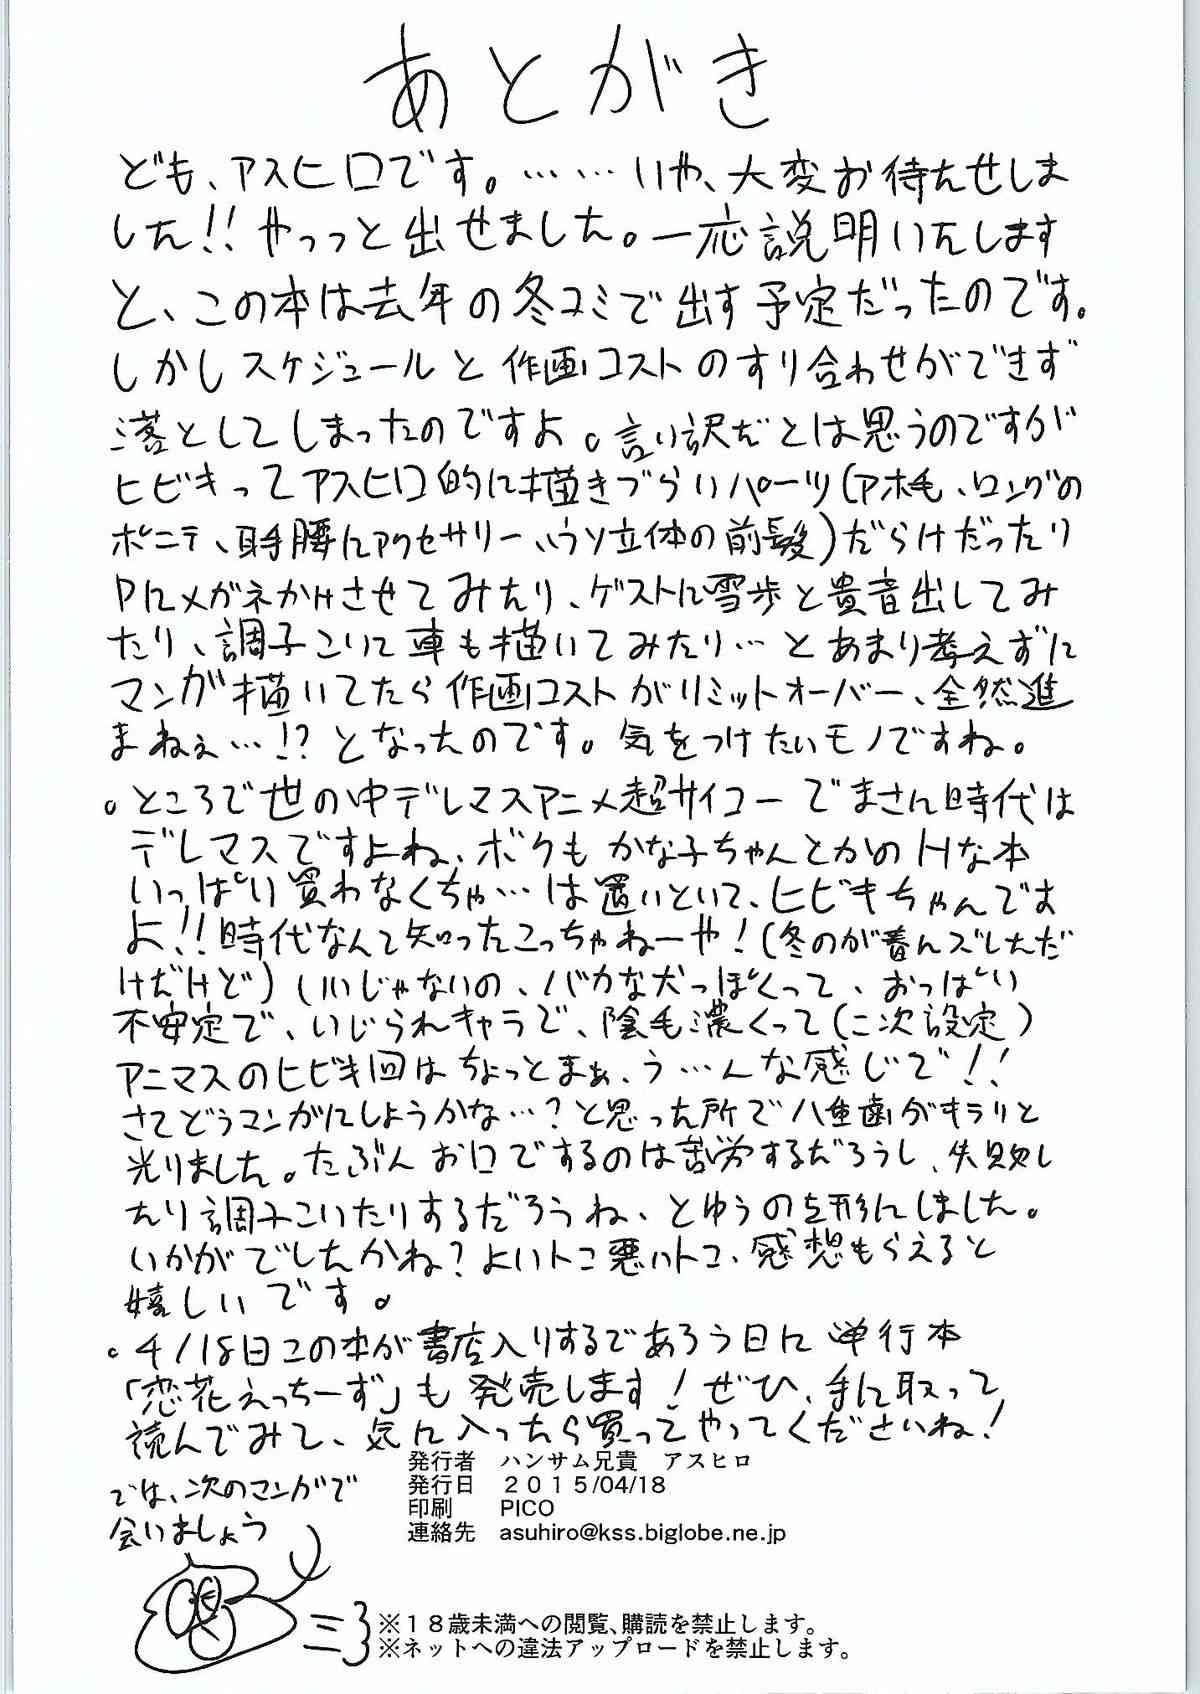 あとがき
ども、アスヒロです。……いや、大変お待たせしま
した!!やっっと出せました。一応説明いたします
と、この本は去年の冬コミで出す予定だったのです。
しかしスケジュールと作画コストのすり合わせができず
落としてしまったのですよ。言い訳だとは思うのですが
ヒビキってアスヒロ的に描きづらいパーツ(アホ毛、ロングの
ポニテ、耳手腰にアクセサリー、ウソ立体の前髪)だらけだったり
Pにメガネかけさせてみたり、ゲストに雪歩と貴音出してみ
たり、調子こいて車も描いてみたり…とあまり考えずに
マンガ描いてたら作画コストがリミットオーバー、全然進
まねぇ…!?となったのです。気をつけたいモノですね。
。ところで世の中デレマスアニメ超サイコーでまさに時代は
デレマスですよね、ボクもかな子ちゃんとかのHな本
いっぱい買わなくちゃ…は置いといて、ヒビキちゃんです
よ!!時代なんて知ったこっちゃねーや!(冬のが春にズレただ
けだけど)いいじゃないの、バカな犬っぽくって、おっぱい
不安定で、いじられキャラで、陰毛濃くって(二次設定)
アニマスのヒビキ回はちょっとまぁ、う…んな感じで!!
さてどうマンガにしようかな…?と思った所で八重歯がキラリと
光りました。たぶんお口でするのは苦労するだろうし、失敗し
たり調子こいたりするだろうね、とゆうのを形にしました。
いかがでしたかね?よいトコ悪いトコ、感想もらえると
嬉しいです。
。4/18日この本が書店入りするであろう日に単行本
「恋花えっちーず」も発売します!ぜひ、手に取って
読んでみて、気に入ったら買ってやってくださいね!
では、次のマンガで
会いましょう
発行者 ハンサム兄貴 アスヒロ
発行日 2015/04/18
印刷 PICO
連絡先 asuhiro@kss.biglobe.ne.jp
※18歳未満への閲覧、購読を禁止します。
※ネットへの違法アップロードを禁止します。